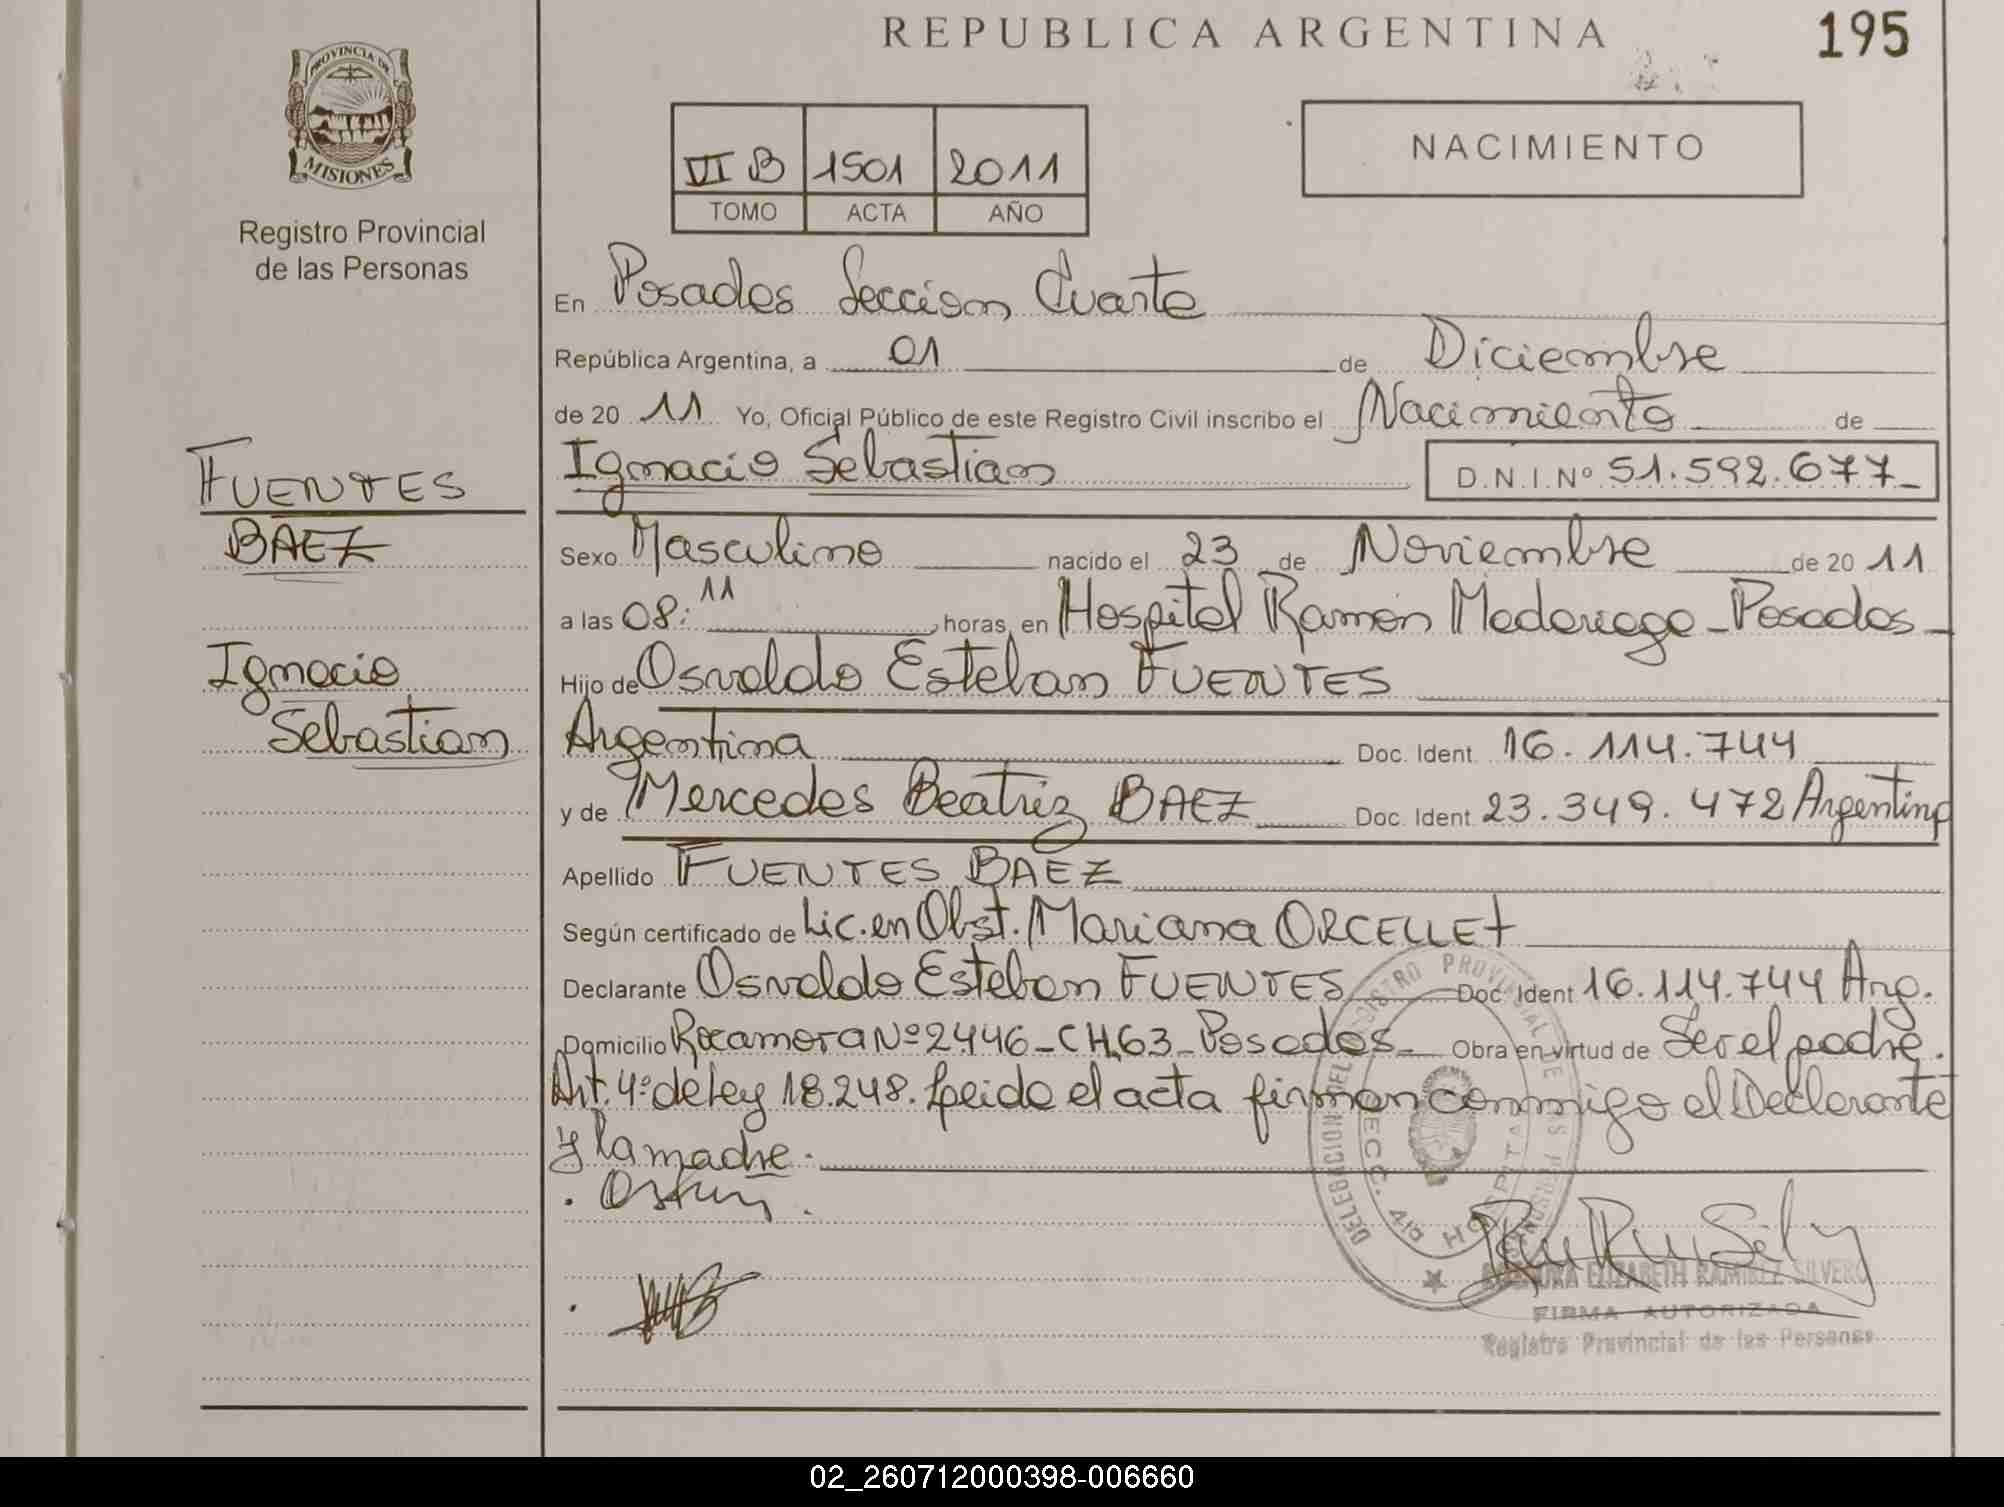 REPUBLICA ARGENTINA
195
PROVINCIA DE
MISIONES
Registro Provincial
de las Personas
VI B 1501 2011
TOMO ACTA AÑO
NACIMIENTO
En Posadas Seccion Cuarta
República Argentina, a 01 de Diciembre
de 20 11 Yo, Oficial Público de este Registro Civil inscribo el Nacimiento de
Ignacio Sebastian D.N.I.Nº 51.592.677
FUENTES
BAEZ
Ignacio
Sebastian
Sexo Masculino nacido el 23 de Noviembre de 20 11
a las 08:11 horas, en Hospital Ramón Madariaga - Posadas -
Hijo de Osvaldo Esteban FUENTES
Argentina Doc. Ident. 16.114.744
y de Mercedes Beatriz BAEZ Doc. Ident. 23.349.472 Argentina
Apellido FUENTES BAEZ
Según certificado de Lic. en Obst. Mariana ORCELLET
Declarante Osvaldo Esteban FUENTES Doc. Ident 16.114.744 Arg.
Domicilio Rocamora Nº 2446 - CH.63 - Posadas - Obra en virtud de Ser el padre.
Art. 4º de Ley 18.248. Leida el acta firman conmigo el Declarante
y la madre.
DELEGACION DEL REGISTRO PROVINCIAL DE LAS PERSONAS
SECC. 4ta HOSPITAL
ELIZABETH RAMIREZ SILVERO
FIRMA AUTORIZADA
Registro Provincial de las Personas
02_260712000398-006660